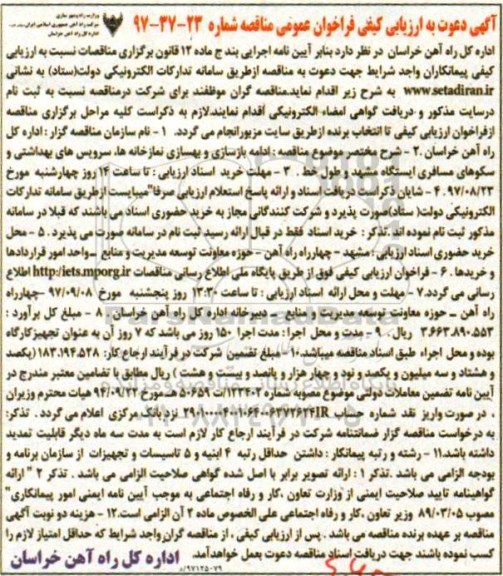 وزارت راه و شهرسازی
شرکت راه آهن جمهوری اسلامی ایران
اداره کل راه آهن خراسان
آگهی دعوت به ارزیابی کیفی فراخوان عمومی مناقصه شماره ۲۳-۳۷-۹۷
اداره کل راه آهن خراسان در نظر دارد بنابر آیین نامه اجرایی بند ج ماده ۱۲ قانون برگزاری مناقصات نسبت به ارزیابی
کیفی پیمانکاران واجد شرایط جهت دعوت به مناقصه ازطریق سامانه تدارکات الکترونیکی دولت(ستاد) به نشانی
www.setadiran.ir به شرح زیر اقدام نماید.مناقصه گران موظفند برای شرکت درمناقصه نسبت به ثبت نام
درسایت مذکور و دریافت گواهی امضاء الکترونیکی اقدام نمایند.لازم به ذکراست کلیه مراحل برگزاری مناقصه
ازفراخوان ارزیابی کیفی تا انتخاب برنده ازطریق سایت مزبورانجام می گردد. ۱- نام سازمان مناقصه گزار : اداره کل
راه آهن خراسان .۲- شرح مختصر موضوع مناقصه : ادامه بازسازی و بهسازی نمازخانه ها، سرویس های بهداشتی و
سکوهای مسافری ایستگاه مشهد و طول خط . ۳- مهلت خرید اسناد ارزیابی : تا ساعت ۱۴ روز چهارشنبه مورخ
۹۷/۰۸/۲۳. ۴- شایان ذکراست دریافت اسناد و ارائه پاسخ استعلام ارزیابی صرفا"میبایست ازطریق سامانه تدارکات
الکترونیکی دولت( ستاد)صورت پذیرد و شرکت کنندگانی مجاز به خرید حضوری اسناد می باشند که قبلا در سامانه
مذکور ثبت نام نموده اند .تذکر : خرید اسناد فقط در قبال ارائه رسید ثبت نام در سامانه صورت می پذیرد . ۵- محل
خرید حضوری اسناد ارزیابی : مشهد - چهارراه راه آهن - حوزه معاونت توسعه مدیریت و منابع - واحد امور قراردادها
و خریدها . ۶- فراخوان ارزیابی کیفی فوق از طریق پایگاه ملی اطلاع رسانی مناقصات http://iets.mporg.ir اطلاع
رسانی می گردد.۷- مهلت و محل ارائه اسناد ارزیابی : تا ساعت ۱۳:۳۰ روز پنجشنبه مورخ ۹۷/۰۹/۰۸ -چهارراه
راه آهن - حوزه معاونت توسعه مدیریت و منابع - دبیرخانه اداره کل راه آهن خراسان . ۸- مبلغ کل برآورد :
۳.۶۶۳.۸۹۰.۵۵۲ ریال . ۹- مدت و محل اجرا : مدت اجرا ۱۵۰ روز می باشد که ۷ روز آن به عنوان تجهیزکارگاه
بوده و محل اجراء طبق اسناد مناقصه میباشد.۱۰- مبلغ تضمین شرکت در فرآیند ارجاع کار: ۱۸۳.۱۹۴.۵۲۸(یکصد
و هشتاد و سه میلیون و یکصد و نود و چهار هزار و پانصد و بیست و هشت ) ریال مطابق با تضامین معتبر مندرج در
آیین نامه تضمین معاملات دولتی موضوع مصوبه شماره ۱۲۳۴۰۲/ت ۵۰۶۵۹ هـ مورخ ۹۴/۰۹/۲۲ هیات محترم وزیران
، در صورت واریز نقد شماره حساب نزد بانک مرکزی اعلام می گردد . تذکر:
به درخواست مناقصه گزار ضمانتنامه شرکت در فرآیند ارجاع کار لازم است به مدت سه ماه دیگر قابلیت تمدید
داشته باشد.۱۱- رشته و رتبه پیمانکار : داشتن حداقل رتبه ۴ ابنیه و ۵ تاسیسات و تجهیزات از سازمان برنامه و
بودجه الزامی می باشد .تذکر۱ : ارائه تصویر برابر با اصل شده گواهی صلاحیت الزامی می باشد . تذکر ۲ " ارائه
گواهینامه تایید صلاحیت ایمنی از وزارت تعاون ،کار و رفاه اجتماعی به موجب آیین نامه ایمنی امور پیمانکاری"
مصوب ۸۹/۰۳/۰۵ وزیر تعاون ،کار و رفاه اجتماعی علی الخصوص ماده ۲ آن الزامی است.۱۲- هزینه دو نوبت آگهی
مناقصه بر عهده برنده مناقصه می باشد . پس از ارزیابی کیفی ، از مناقصه گران واجد شرایط که حداقل امتیاز لازم را
کسب نموده باشند جهت دریافت اسناد مناقصه دعوت بعمل خواهدآمد.
اداره کل راه آهن خراسان
۹۷۱۲۵۰۷۹/م